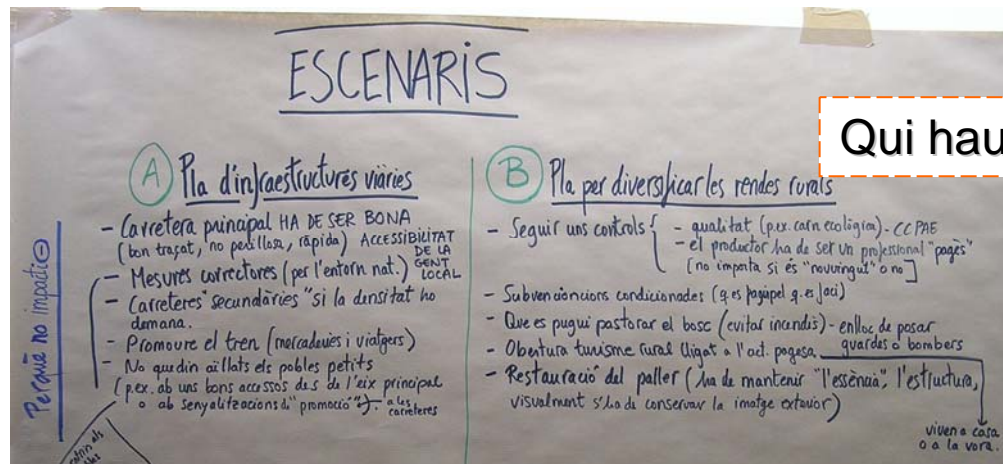 ESCENARIS
Qui hau
A Pla d'infraestructures viàries
- Carretera principal HA DE SER BONA
(bon traçat, no perillosa, ràpida) ACCESSIBILITAT
DE LA
GENT
LOCAL
- Mesures correctores (per l'entorn nat.)
- Carreteres "secundàries" si la densitat ho
demana.
- Promoure el tren (mercaderies i viatgers)
- No quedin aïllats els pobles petits
(p.ex. ab uns bons accessos des de l'eix principal
o ab senyalitzacions de "promoció") a les
carreteres
Perquè no impacti
B Pla per diversificar les rendes rurals
- Seguir uns controls { - qualitat (p.ex. carn ecològica) - CCPAE
- el productor ha de ser un professional "pagès"
[no importa si és "nouvingut" o no]
- Subvencions condicionades (q. es pagui pel q. es faci)
- Que es pugui pastorar el bosc (evitar incendis) - enlloc de posar
guardes o bombers
- Obertura turisme rural lligat a l'act. pagesa
- Restauració del paller (ha de mantenir "l'essència", l'estructura,
visualment s'ha de conservar la imatge exterior)
viuen a casa
o a la vora.